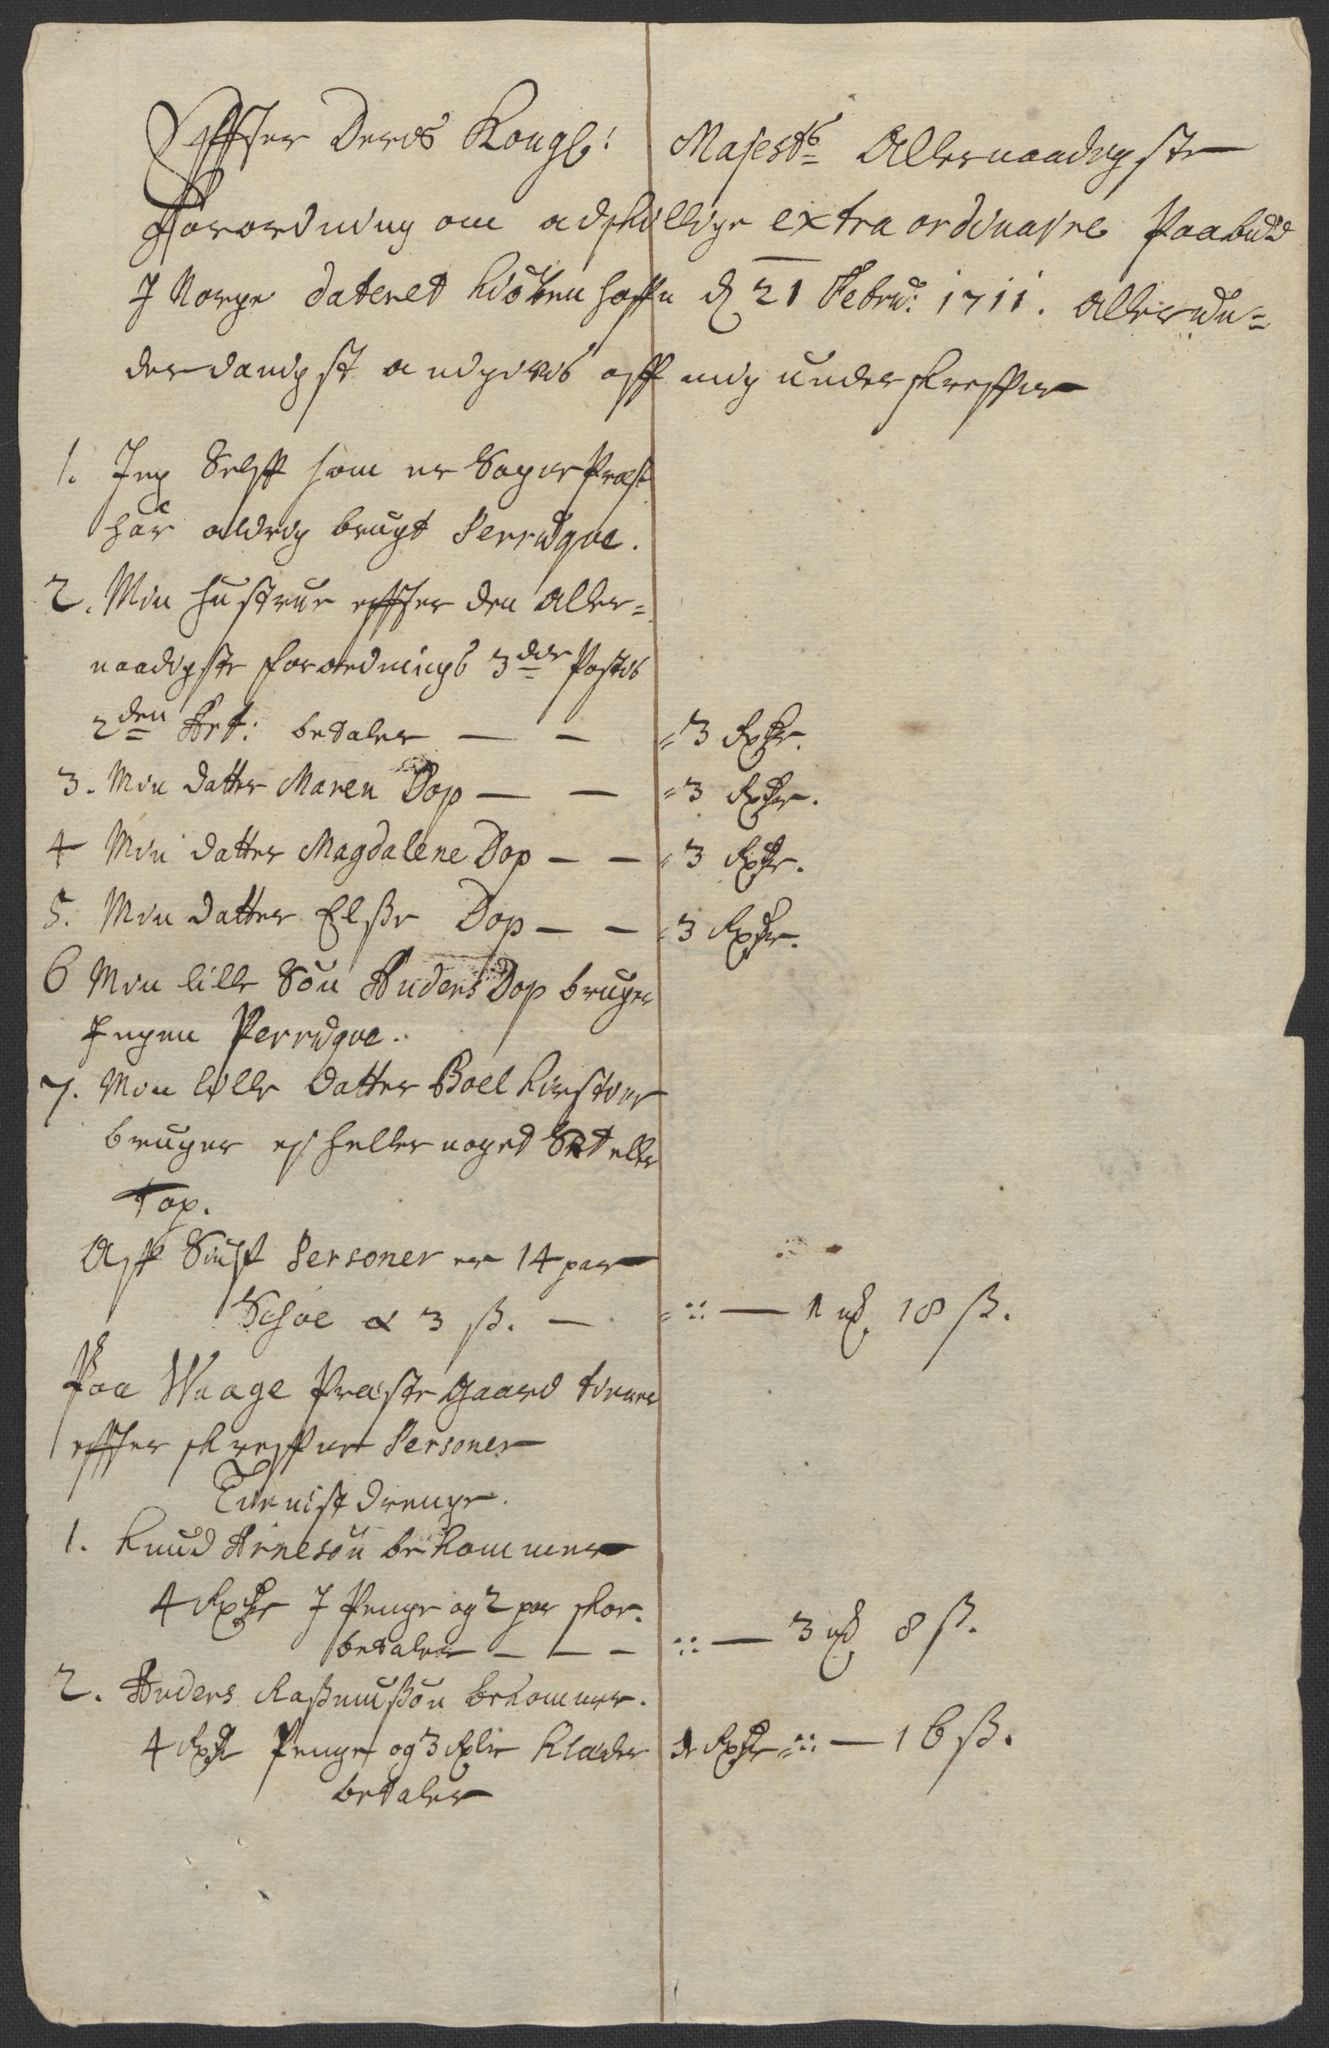 Effter Deres Kongl: Majests Allernaadigste
Forordning om adskillige extra ordinaire Paabud
J Norge dateret Kiøbenhaffn d 21 Febru: 1711. Allerun=
derdanigst angives aff mig underskreffne
1. Jeg Selff som er SognePræst
har aldrig brugt Perruqve.
2. Min Hustrue effter den Aller=
naadigste forordnings 3die Postes
2den Art: betaler — — = 3 Rdr.
3. Min datter Maren Dop — — = 3 Rdr.
4 Min datter Magdalene Dop — — = 3 Rdr.
5. Min datter Elße Dop — — = 3 Rdr.
6 Min lille Søn Anders Dop bruger
Jngen Perruqve.
7. Min lille datter Boel Kirstine
bruger ej heller noged Set eller
Top.
Aff Siufst Personer er 14 par
Schoe a 3 ß. — = :: — 1 mk 18 ß.
Paa Waage Præste Gaard tiener
effterskreffne Personer
Tienist drenge.
1. Knud Arnesøn bekommer
4 Rdr J Penge og 2 par skoe.
betaler — — — :: — 3 mk 8 ß.
2. Anders Raßmußøn bekommer.
4 Rdr Penge og 3 Rdlr Klæder 1 Rdr = :: — 16 ß.
betaler